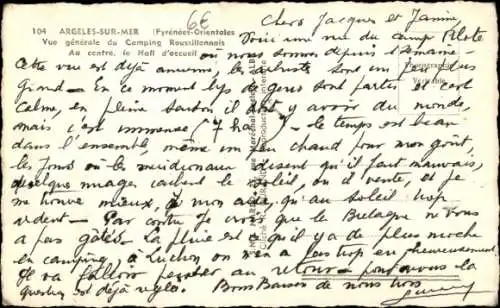 6€
104 ARGELES-SUR-MER (Pyrénées-Orientales
Vue générale du Camping Roussillonnais
Au centre, le Hall d'accueil
Chers Jacques et Janine,
Voici une vue du camp Pilote
où nous sommes depuis 1 semaine -
Cette vue est déjà ancienne, les arbustes sont un peu plus
grand - En ce moment bcp de gens sont partis et c'est
calme, en pleine saison il doit y avoir du monde,
mais c'est immense (7 ha) - le temps est beau
dans l'ensemble, même un peu chaud pour mon goût,
les jours où les méridionaux disent qu'il fait mauvais,
quelques nuages cachent le soleil, ou il vente, et je
me trouve mieux, à mon aise, qu'au soleil trop
ardent - Par contre je crois que la Bretagne ne vous
a pas gâtés - La pluie est ce qu'il y a de plus moche
en camping, à Luchon on en a pas trop eu heureusement
Il va falloir penser au retour - pour nous la
question est déjà réglée. Bons Baisers de nous trois